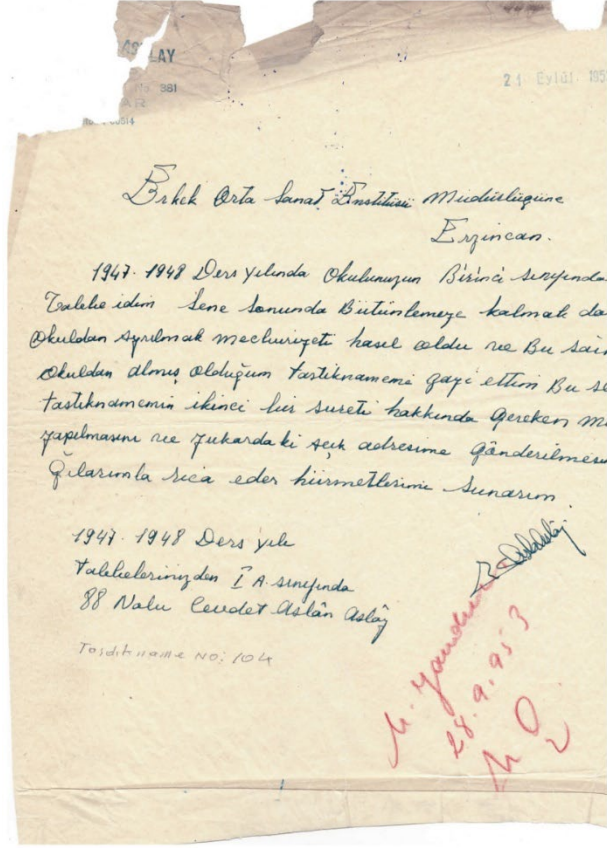 LAY
381
AR
21 Eylül 195
Erkek Orta Sanat Enstitüsü Müdürlüğüne
Erzincan.
1947-1948 Ders yılında Okulunuzun Birinci sınıfında
Talebe idim Sene Sonunda Bütünlemeye kalmak da
Okuldan ayrılmak mecburiyeti hasıl oldu ve Bu
Okuldan almış olduğum tastiknamemi gayi ettim Bu se
tastiknamemin ikinci bir sureti hakkında gereken mu
yapılmasını ve yukardaki açık adresime Gönderilmesi
rica eder hürmetlerimi Sunarım.
1947-1948 Ders yılı
talebelerinizden I A. sınıfında
88 Nolu Cevdet Aslan Aslay
Tasdikname No: 104
28.9.953